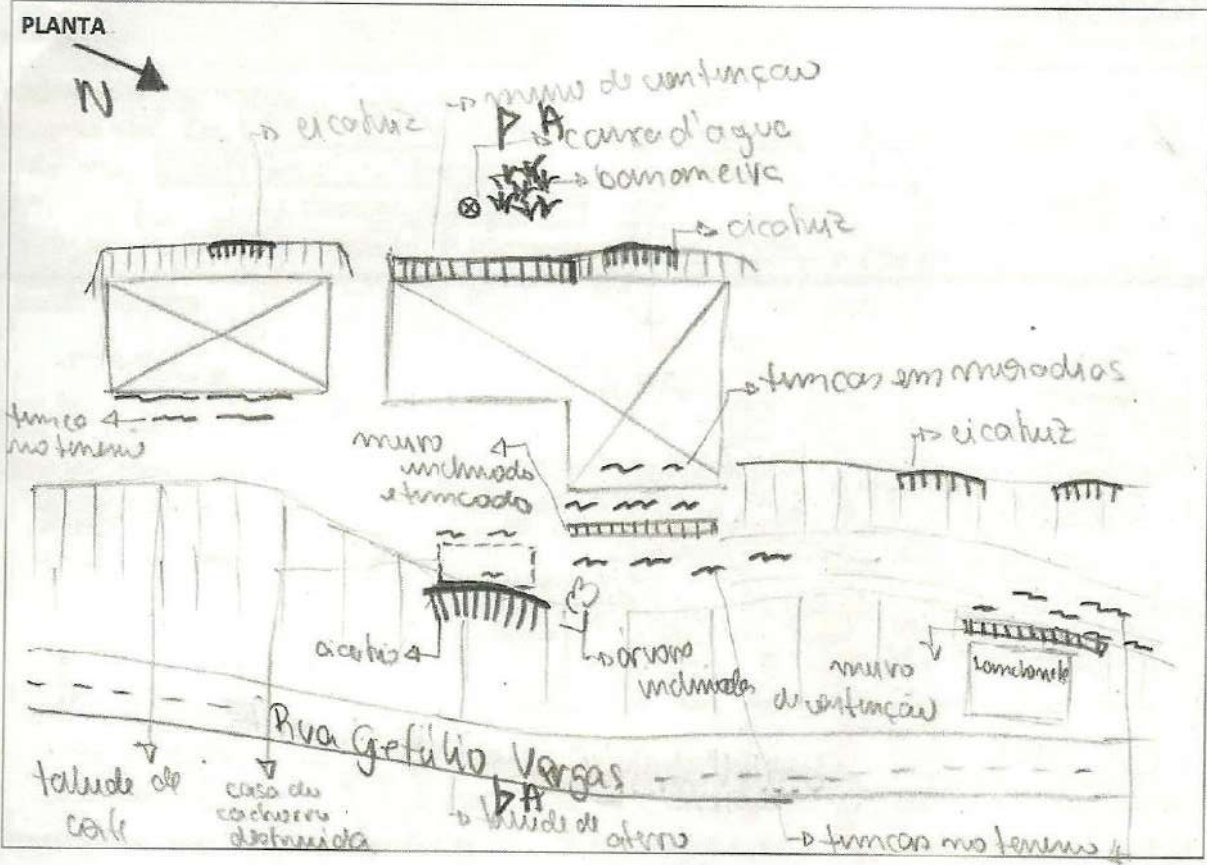 PLANTA
N
cicatriz
muro de contenção
A
caixa d'agua
bananeira
cicatriz
trincas em moradias
trinca
no terreno
muro
inclinado
e trincado
cicatriz
cicatriz
árvore
inclinada
muro
de contenção
lanchonete
Rua Getúlio Vargas
A
talude de
corte
casa do
cachorro
destruida
talude de
aterro
trincas no terreno